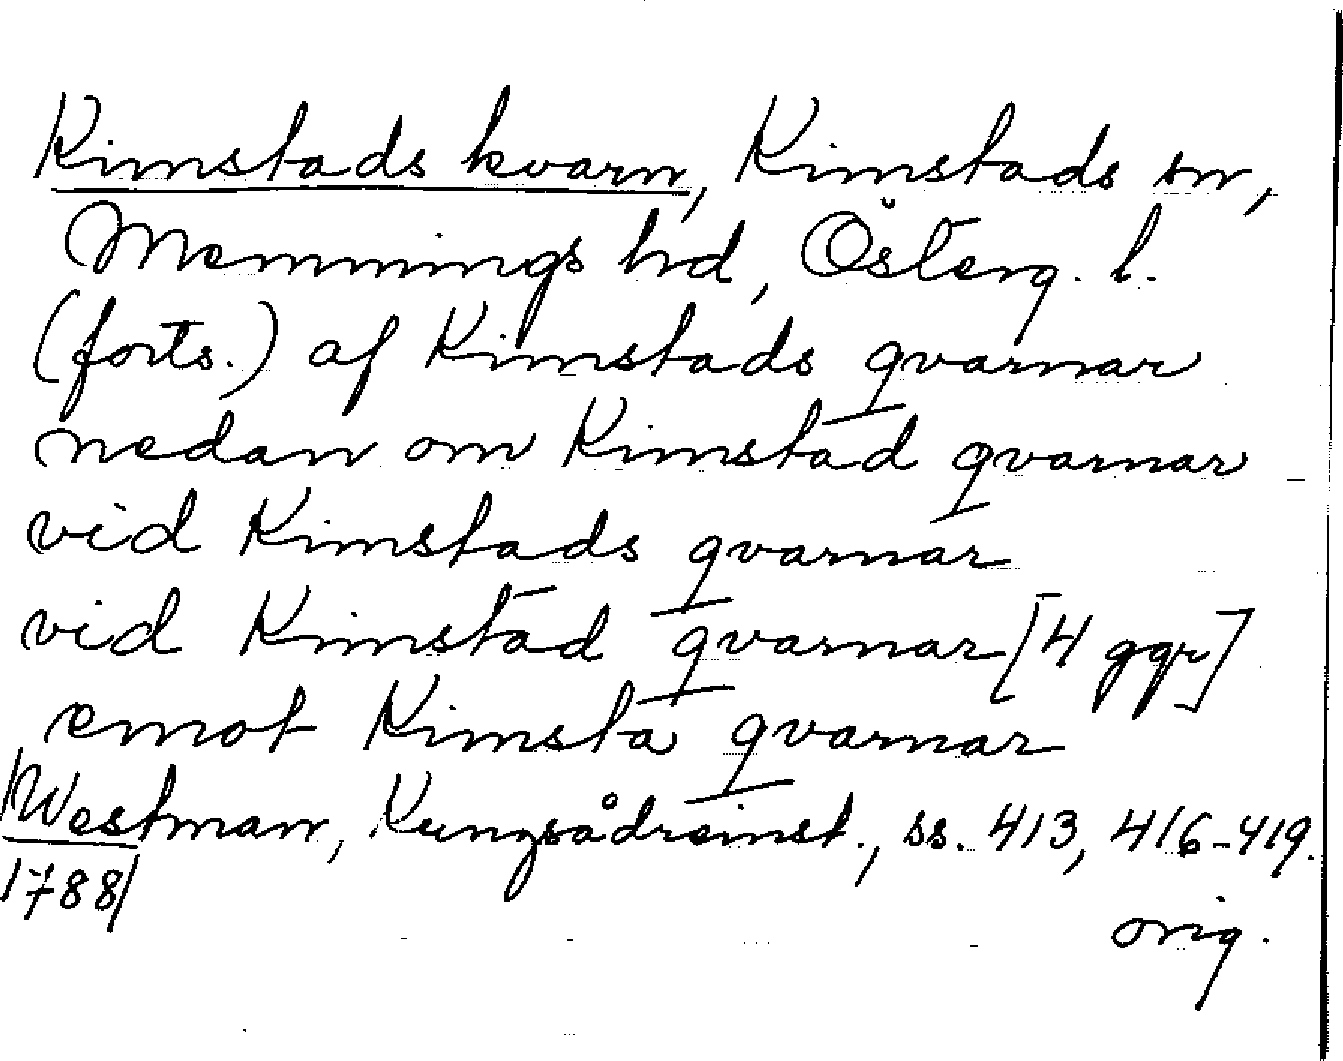 Kimstads kvarn, Kimstads sn,
Memmings hd, Österg. l.
(forts.) af Kimstads qvarnar
nedan om Kimstad qvarnar
vid Kimstads qvarnar
vid Kimstad qvarnar [4 ggr]
emot Kimsta qvarnar
Westman, Kungsådreinst., ss. 413, 416-419.
1788/
orig.